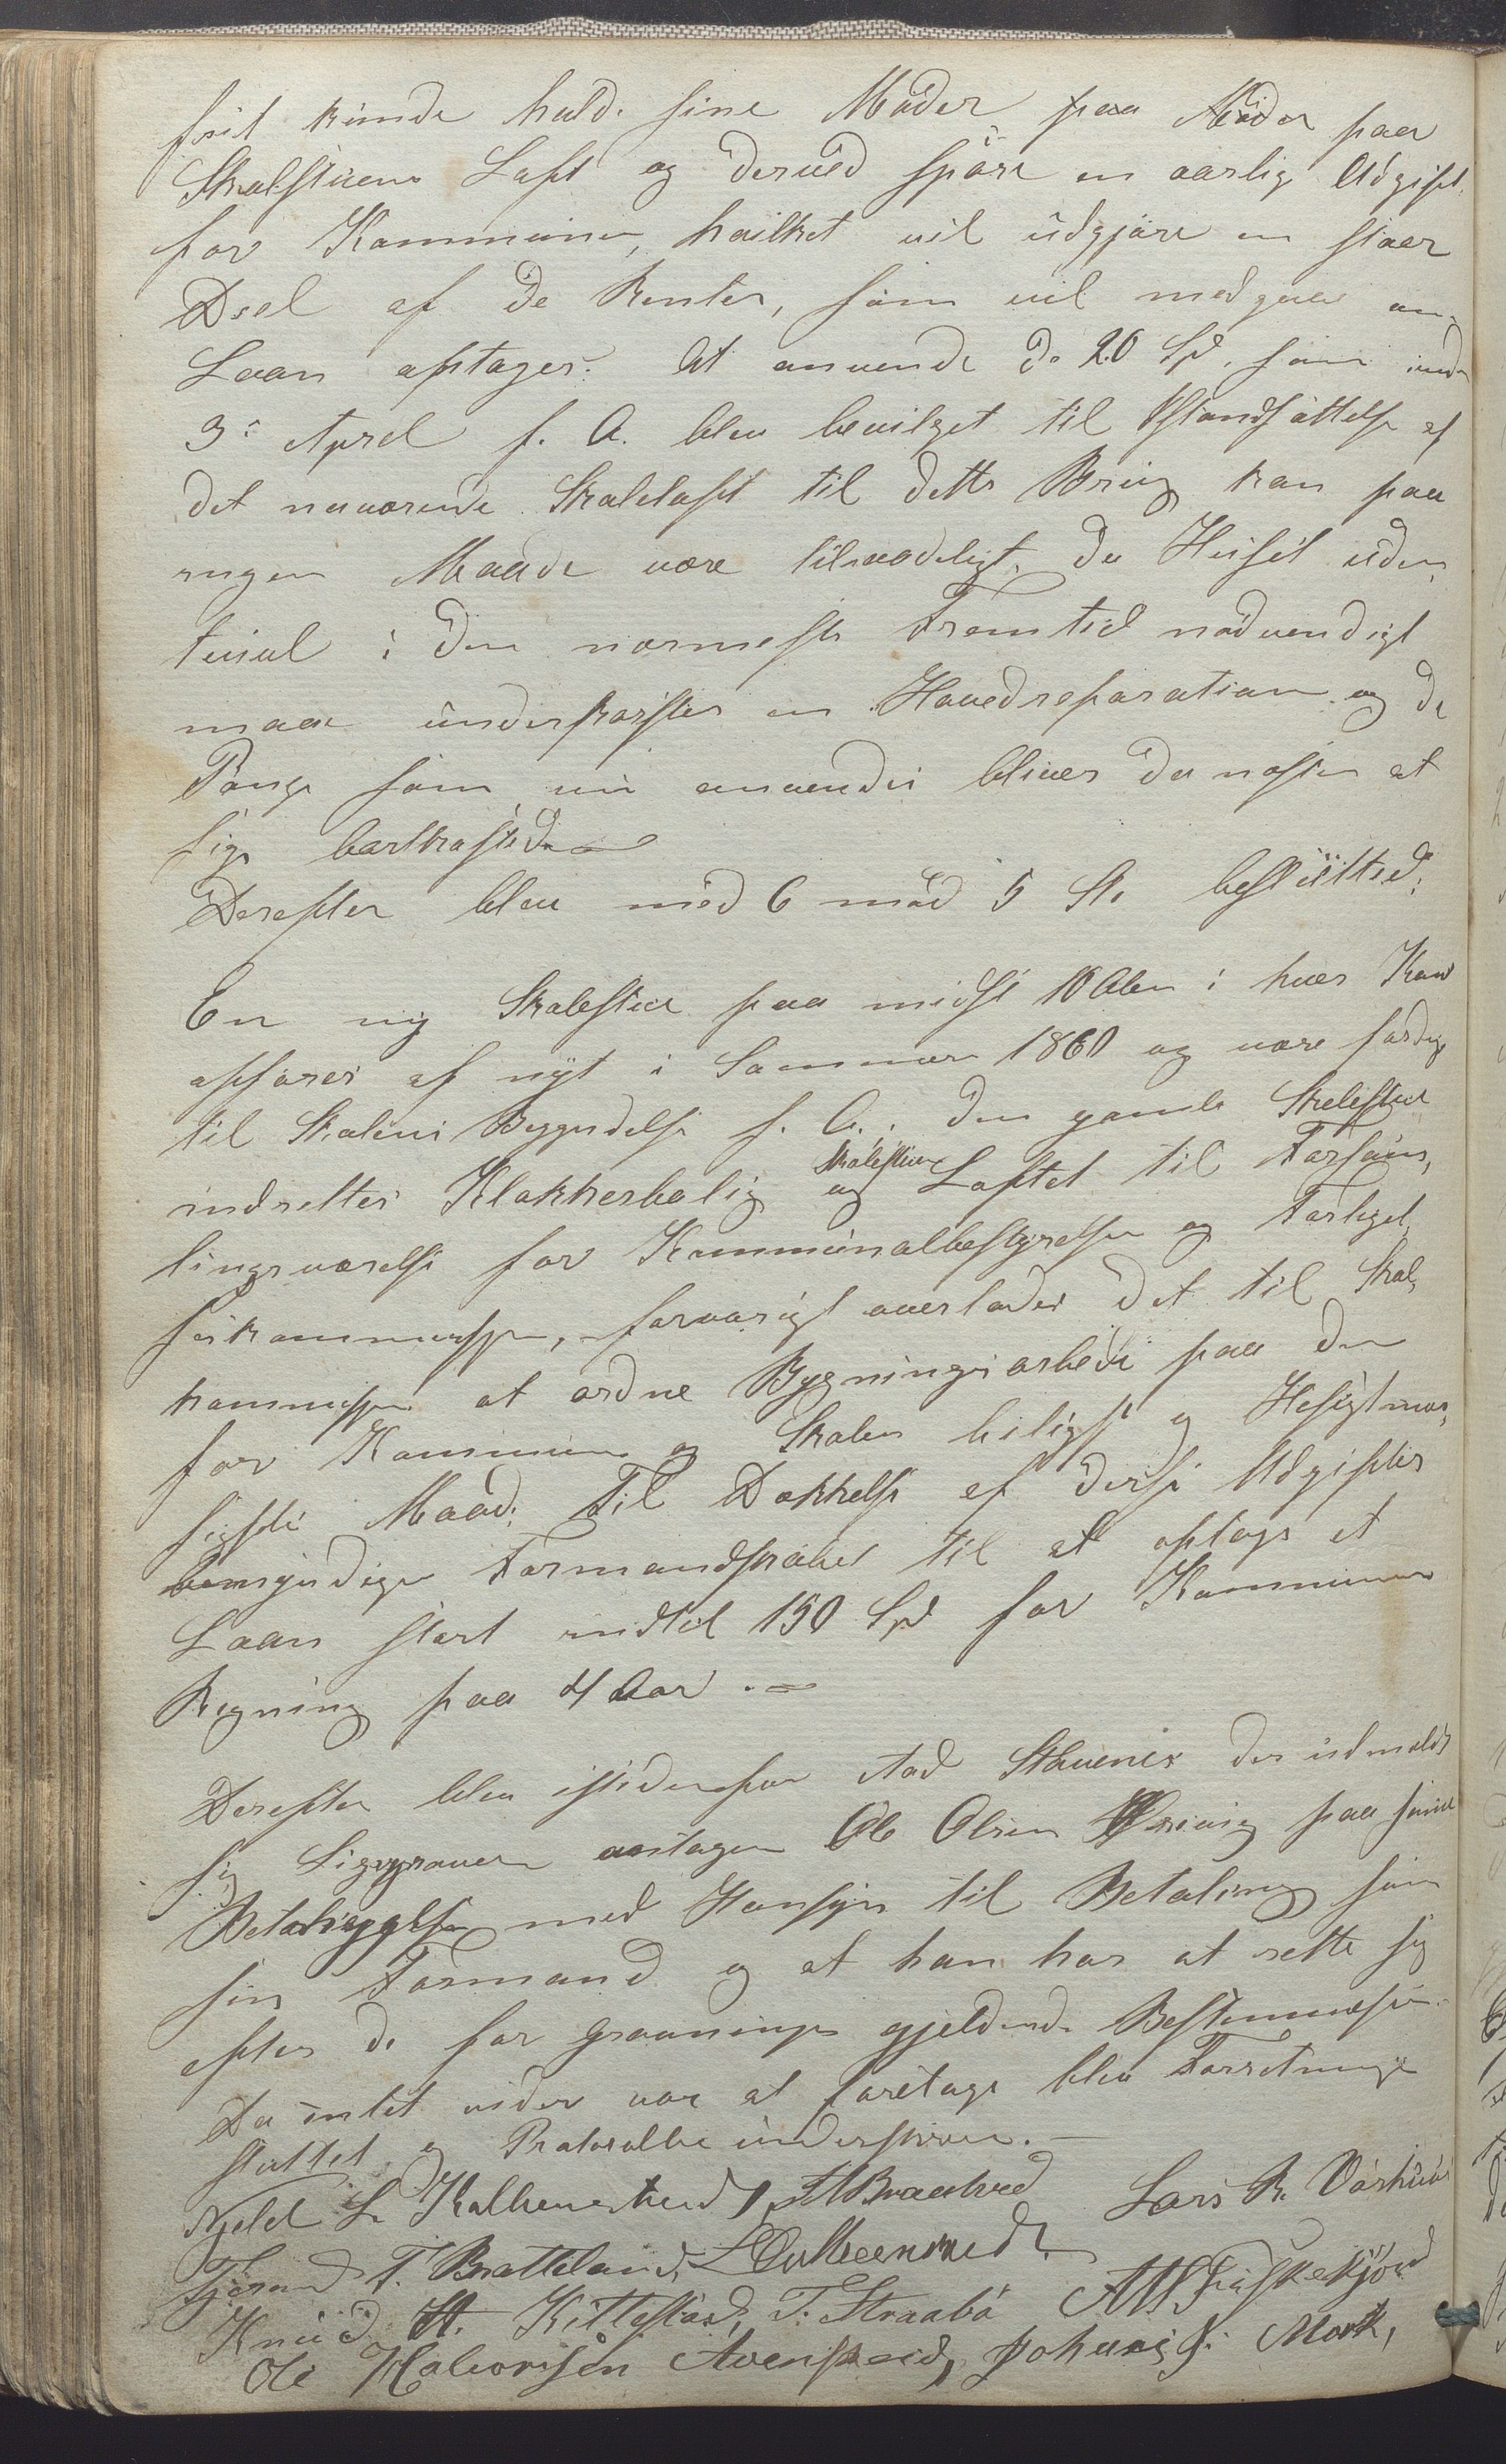 frit kunde hold. sine Möder paa Möder paa
Skolestuens Loft og derved spare en aarlig Udgift
for Kommunen, hvilket vil udgjöre en stoer
Deel af de Renter, som vil medgaae om
Laan optages. At anvende de 20 Spd. som under
3: April f. A. blev bevilget til Istandsættelse af
det nuværende Skoleloft til dette Brug kan paa
ingen Maade være tilraadeligt, da Huset uden
tvivl i den nærmeste Fremtid nödvendigt
maa underkastes en Hovedreparation og de
Penge som nu anvendes bliver da næsten at
sige bortkastede
Derefter blev med 6 mod 5 St. besluttet:
En ny Skolestue paa indst 10 Alen i hver Kant
opföres af nyt i Sommeren 1860 og være færdig
til Skolens Begyndelse f. A.. Den gamle Skolestue
indrettes Klokkerbolig og Skolestuen Loftet til Forsam-
lingsværelse for Kommunalbestyrelsen og Forligel-
seskommissjon, forövrigt overlades det til Skol-
kommissjon at ordne Bygningsarbeidet paa den
for Kommunen og Skolen biligst og Hensigtmæs-
sigste Maade. Til Dækkelse af disse Udgifter
bemyndiges Formandskabet til at optage et
Laan stort indtil 150 Spd for Kommunens
Regning paa 4 Aar. —
Derefter blev istedenfor Aad Sthuenes der udmeldte
sig Liggraver antagen Ole Olsen paa samme
med Hensyn til Betaling som
sin Formand og at han har at rette sig
efter de for Gravningen gjeldende Bestemmelser.
Da intet videre var at foretage blev Forretningen
sluttet og Protocollen underskreven. —
Njeld L. Kallevig Lars R. Vörhuus
Tjerand T. Bratteland,
Knud H. Kittelstad, T. Straabö
Ole Halvorsen Svensheid, Johannes J. Mork,